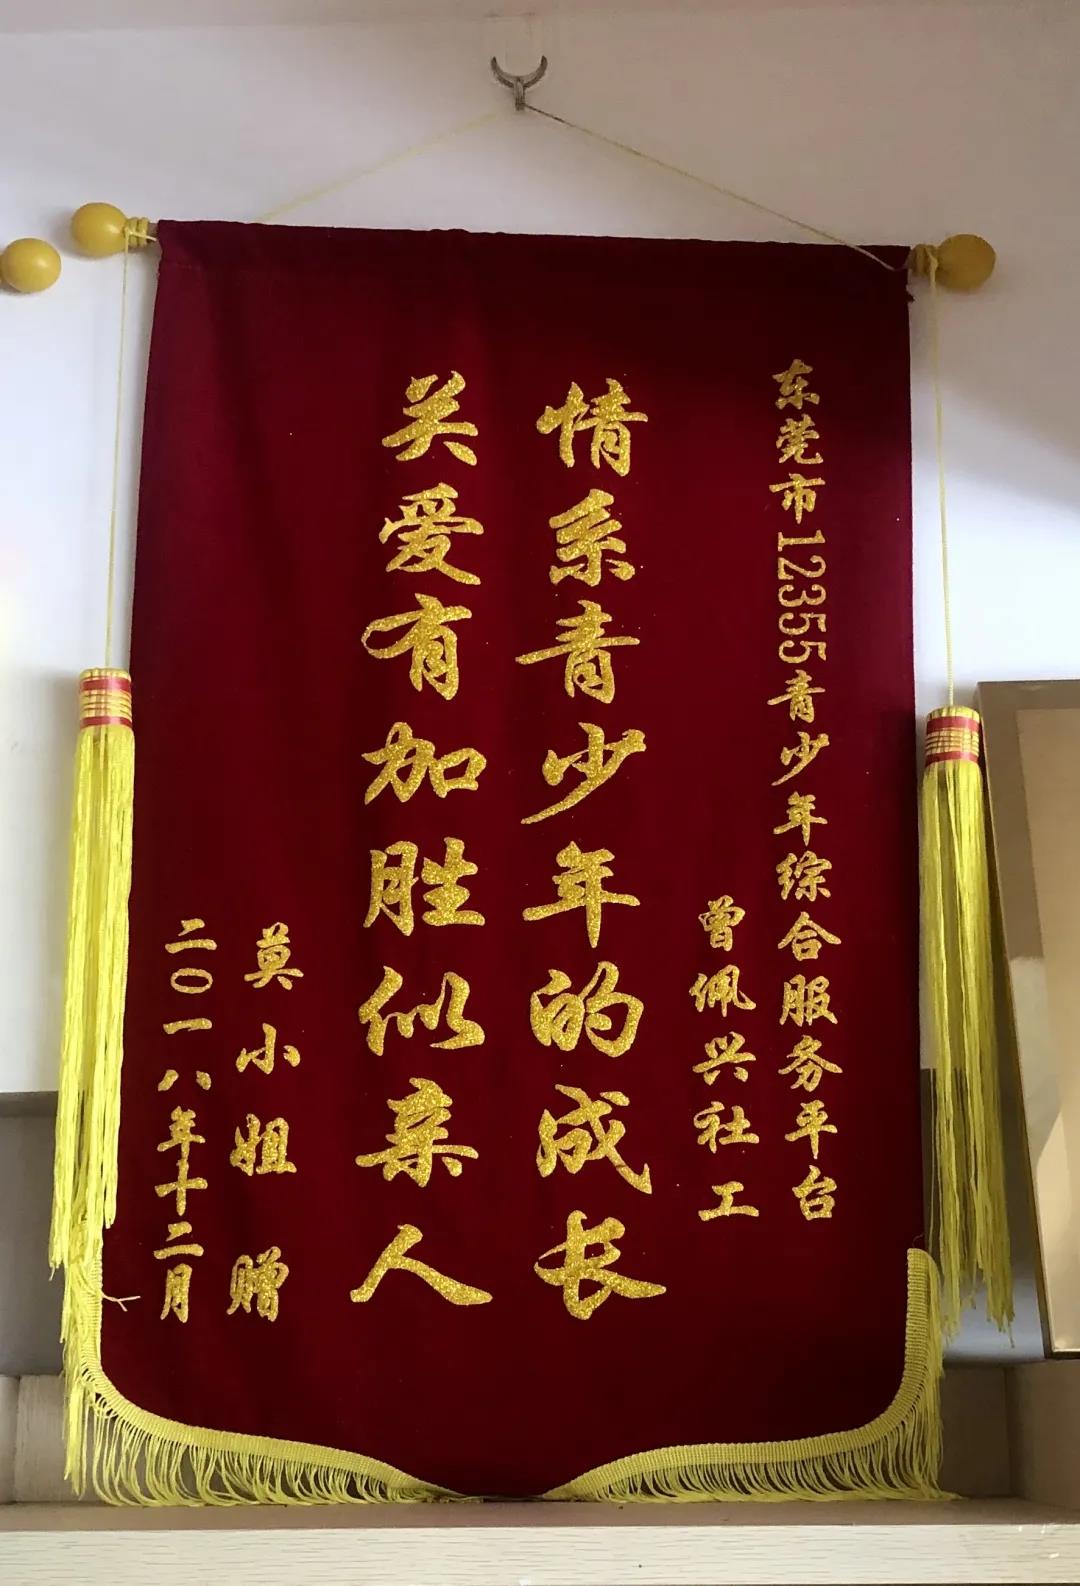 东莞市12355青少年综合服务平台
曾佩兴社工
情系青少年的成长
关爱有加胜似亲人
莫小姐赠
二〇一八年十二月